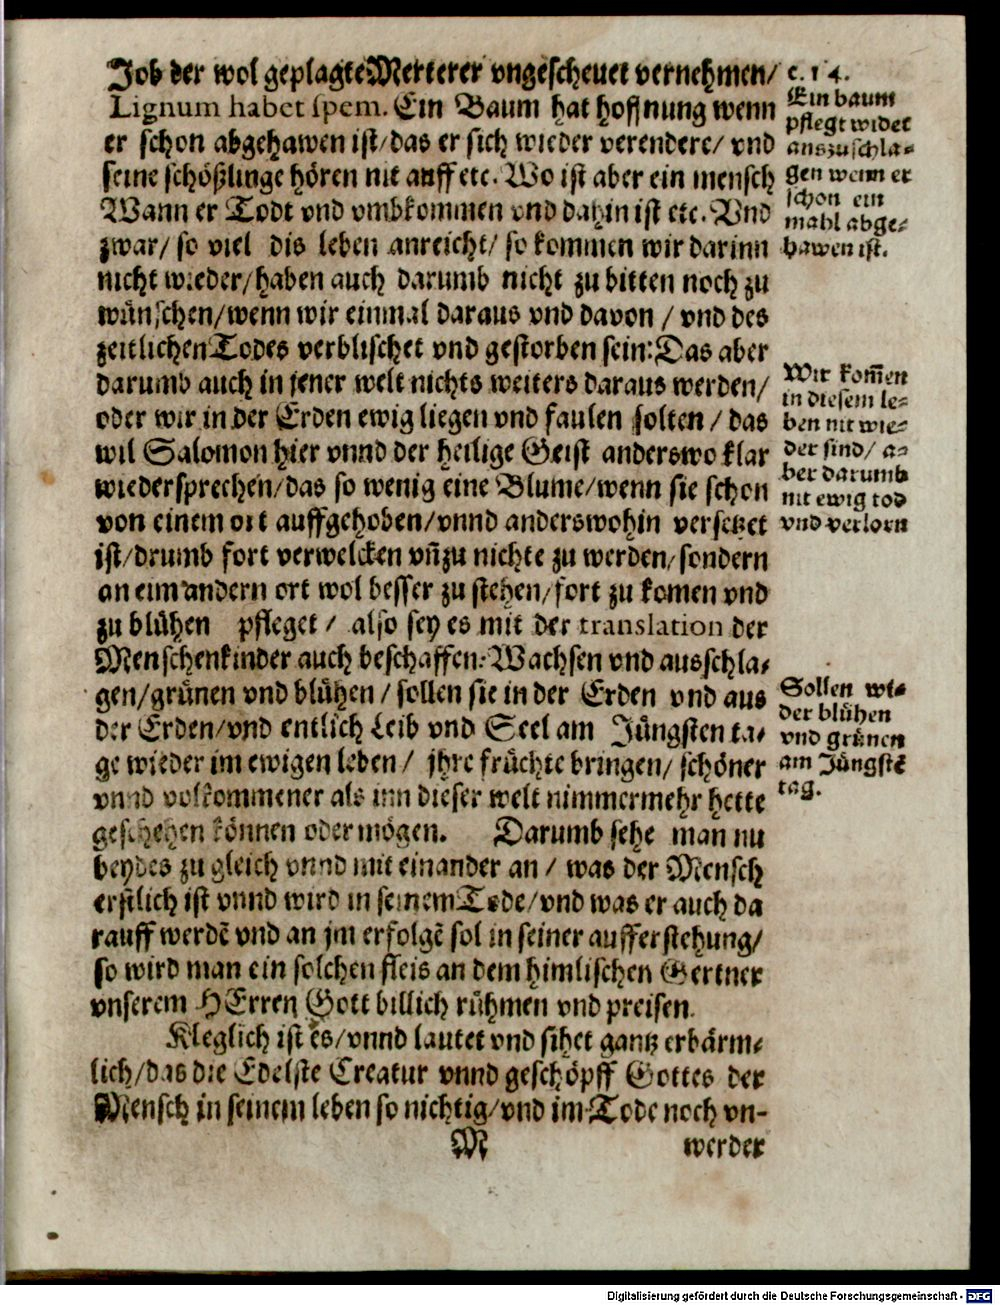 Job der wol geplagte Merterer vngescheuet vernehmen/
Lignum habet spem. Ein Baum hat hoffnung wenn
er schon abgehawen ist/das er sich wieder verendere/ vnd
seine schößlinge hören nit auff etc. Wo ist aber ein mensch
Wann er Todt vnd vmbkommen vnd dahin ist etc. Vnd
zwar/ so viel dis leben anreicht/ so kommen wir darinn
nicht wieder/haben auch darumb nicht zu bitten noch zu
wünschen/wenn wir einmal daraus vnd davon / vnd des
zeitlichen Todes verblischet vnd gestorben sein: Das aber
darumb auch in jener welt nichts weiters daraus werden/
oder wir in der Erden ewig liegen vnd faulen solten / das
wil Salomon hier vnnd der heilige Geist anderswo klar
wiedersprechen/das so wenig eine Blume/wenn sie schon
von einem ort auffgehoben/vnnd anderswohin versetzet
ist/drumb fort verwelcken vñ zu nichte zu werden/sondern
an eim andern ort wol besser zu stehen/fort zu komen vnd
zu blühen pfleget / also sey es mit der translation der
Menschenkinder auch beschaffen: Wachsen vnd ausschla-
gen/grünen vnd blühen / sollen sie in der Erden vnd aus
der Erden/vnd entlich Leib vnd Seel am Jüngsten ta-
ge wieder im ewigen leben / jhre früchte bringen/ schöner
vnnd volkommener als inn dieser welt nimmermehr hette
geschehen können oder mögen. Darumb sehe man nu
beydes zu gleich vnnd mit einander an / was der Mensch
erstlich ist vnnd wird in seinem Tode/vnd was er auch da
rauff werdẽ vnd an jm erfolgẽ sol in seiner aufferstehung/
so wird man ein solchen fleis an dem himlischen Gertner
vnserem HErren Gott billich rühmen vnd preisen.
Kleglich ist es/vnnd lautet vnd sihet gantz erbärm-
lich/das die Edelste Creatur vnnd geschöpff Gottes der
Mensch in seinem leben so nichtig/vnd im Tode noch vn-
M werder
c. 14.
Ein baum
pflegt wider
auszuschla-
gen wenn er
schon ein
mahl abge-
hawen ist.
Wir kom̃en
in diesem le-
ben nit wie-
der sind/ a-
ber darumb
nit ewig tod
vnd verlorn
Sollen wi-
der blühen
vnd grünen
am Jüngstẽ
tag.
Digitalisierung gefördert durch die Deutsche Forschungsgemeinschaft - DFG